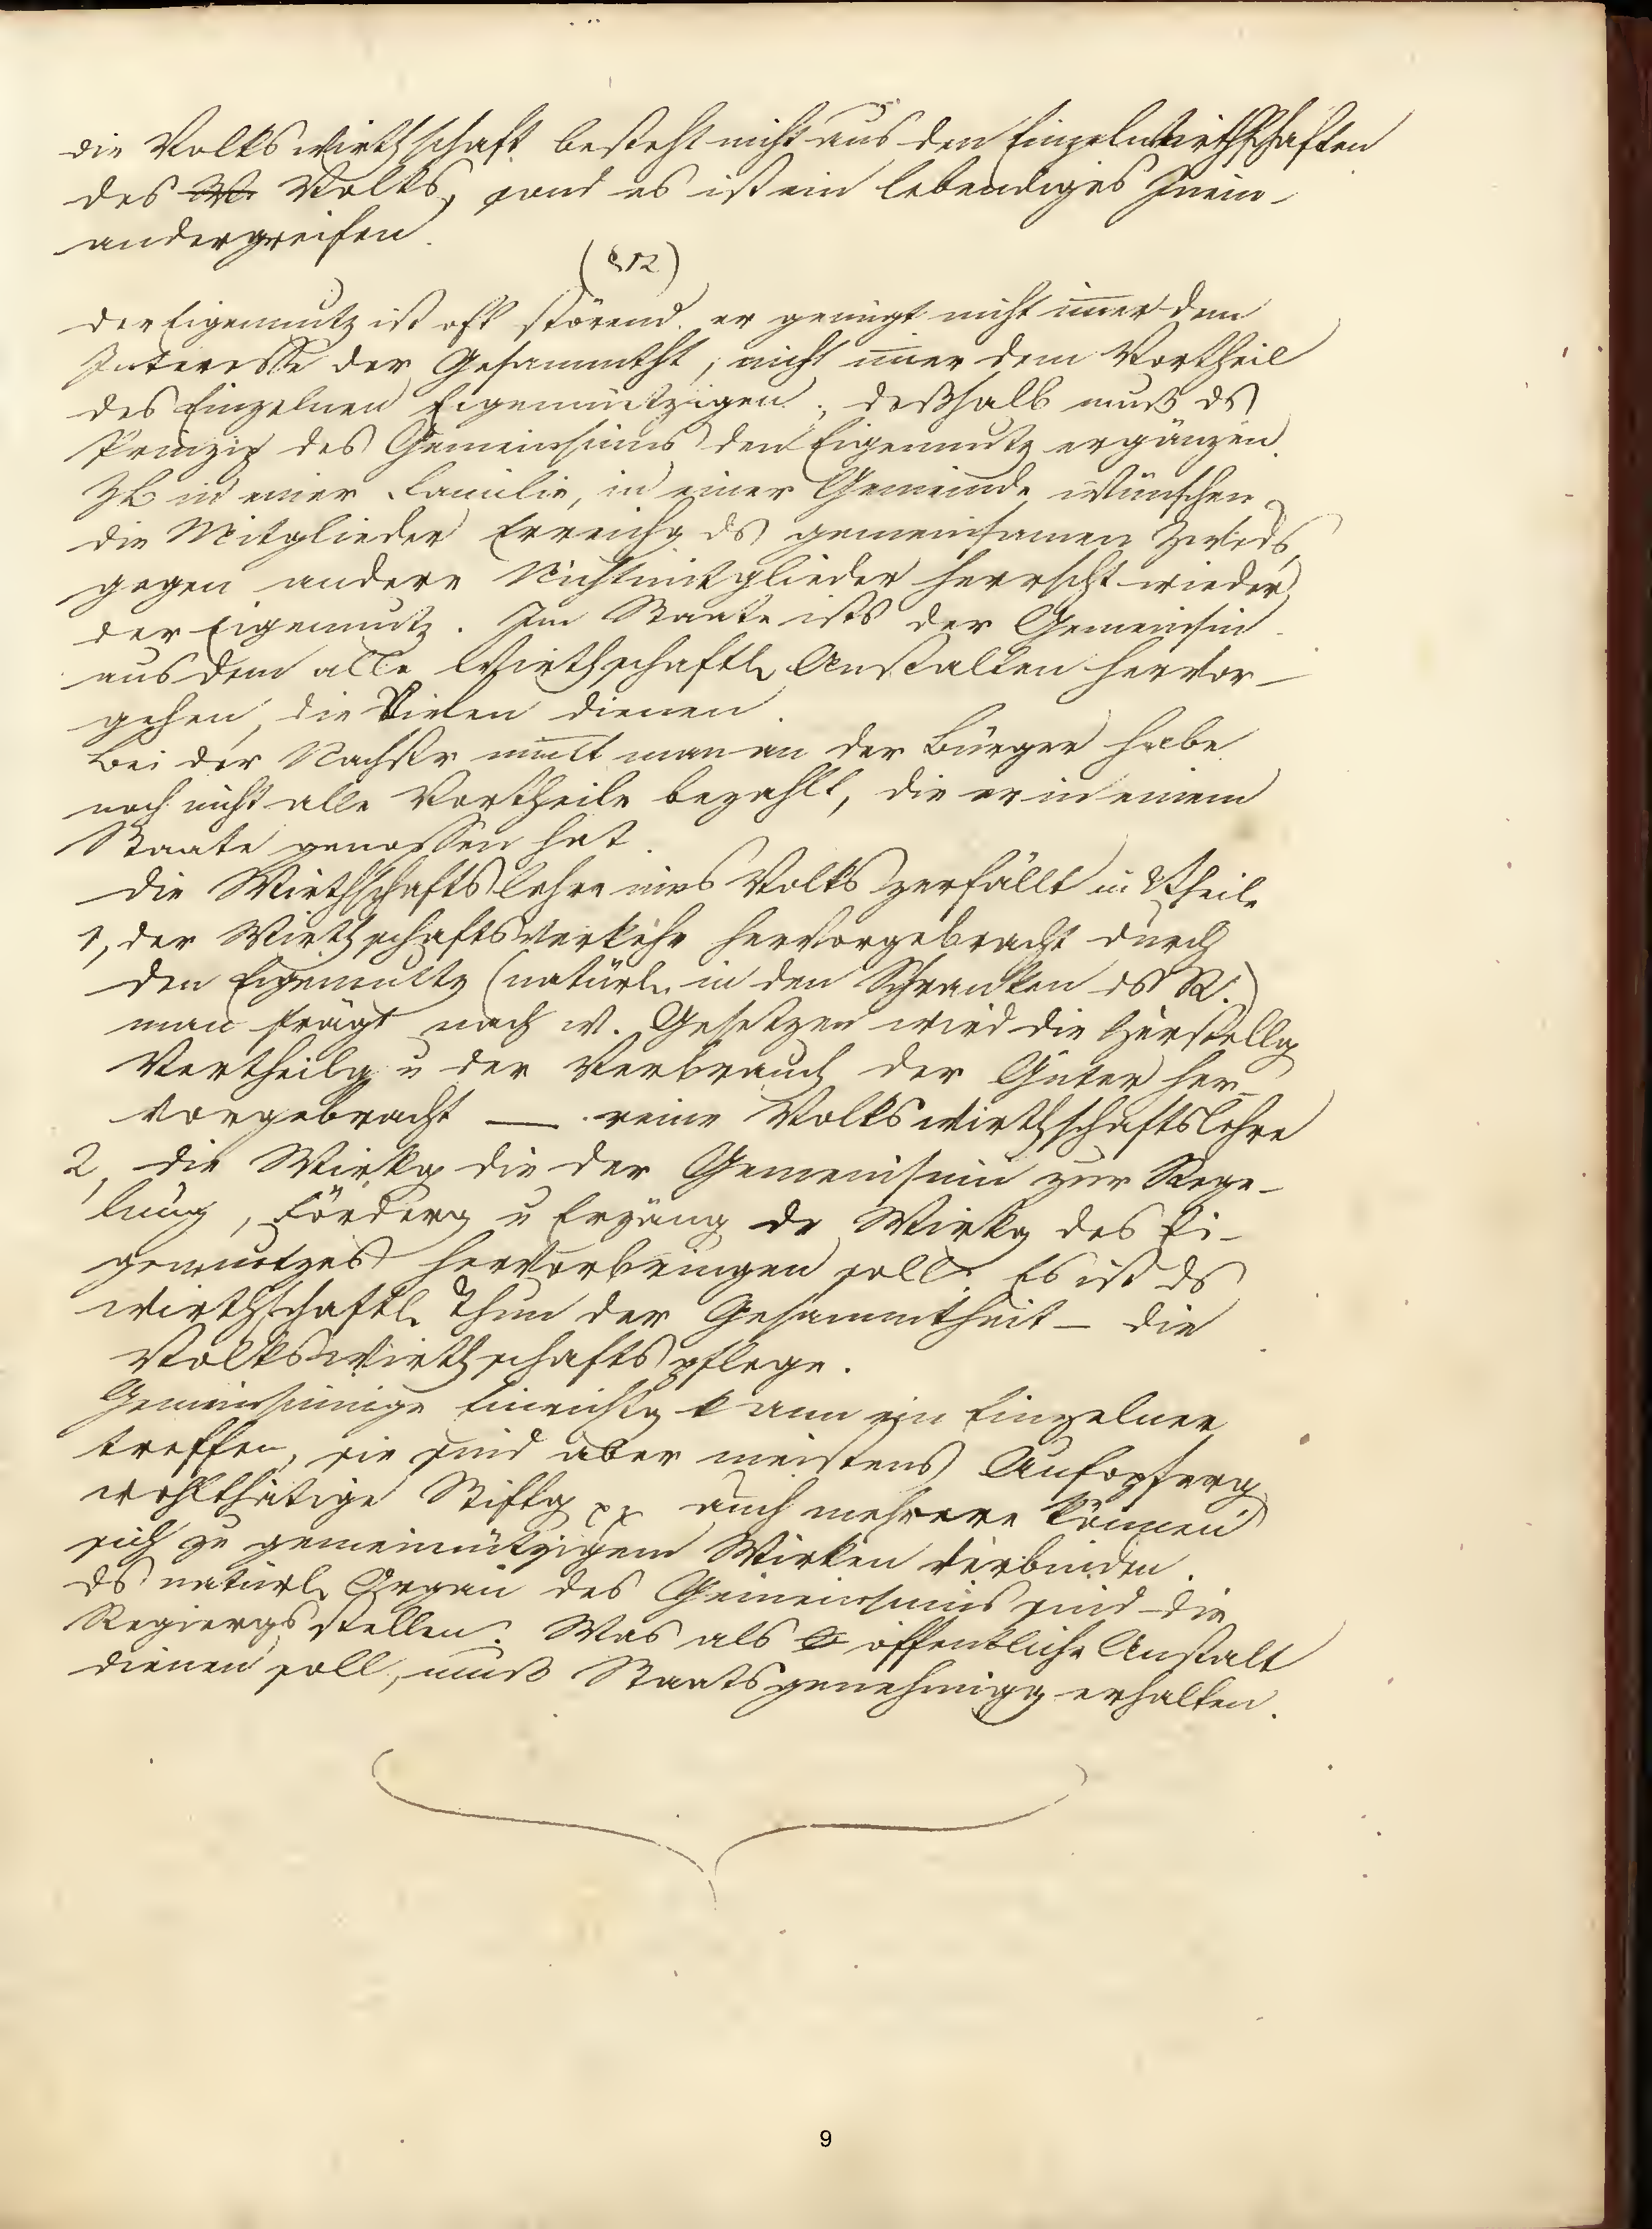 die Volkswirthschaft besteht nicht aus den Einzelnwirthschaften
des Volks, sond es ist ein lebendiges Inein-
andergreifen.
(§12)
der Eigennutz ist oft störend. er genügt nicht imer dem
Interesse der Gesammtht, nicht imer dem Vortheil
des Einzelnen Eigennützigen; deßhalb muß ds
Prinzip des Gemeinsinns den Eigennutz ergänzen.
ZB in einer Familie, in einer Gemeinde wünschen
die Mitglieder Erreichg ds gemeinsamen Zwecks,
gegen andere Nichtmitglieder herrscht wieder
der Eigennutz. Im Staate ists der Gemeinsin
aus dem alle wirthschaftl. Anstalten hervor-
gehen, die Vielen dienen.
Bei der Nachstr nimt man an der Bürger habe
noch nicht alle Vortheile bezahlt, die er in einem
Staate genossen hat.
die Wirthschaftslehre eines Volks zerfällt in 2 Theile
1, der Wirthschaftsverkehr hervorgebracht durch
den Eigennutz (natürl. in den Schranken ds R.)
man frägt nach w. Gesetzen wird die Herstellg
Vertheilg u der Verbrauch der Güter her-
vorgebracht — reine Volkswirthschaftslehre
2, die Wirkg die der Gemeinsinn zur Rege-
lung, Förderg u Ergänzg der Wirkg des Ei-
gennutzes hervorbringen soll. Es ist ds
wirthschaftl. Thun der Gesammtheit — die
Volkswirthschaftspflege.
Gemeinsinnige Einrichtg kann ein Einzelner
treffen, sie sind aber meistens Aufopferg
wohlthätige Stiftg auch mehrere können
sich zu gemeinnützigem Wirken verbinden.
ds natürl. Organ des Gemeinsinns sind die
Regiergsstellen. Was als öffentliche Anstalt
dienen soll, muß Staatsgenehmigg erhalten.
9